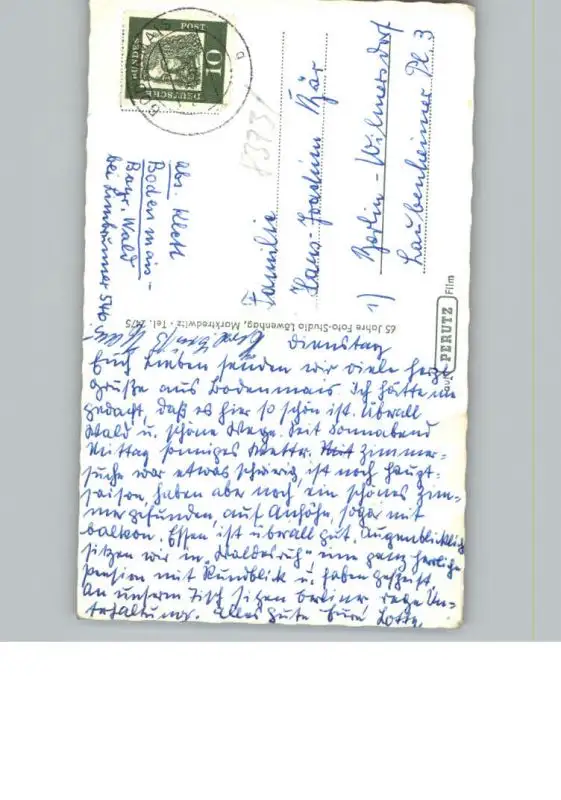 DEUTSCHE
BUNDES
POST
10
Abs. Klett
Bodenmais -
Bayr. Wald
bei Limbrunner 546
Familie
Hans-Joachim Bär
1) Berlin-Wilmersdorf
Laubenheimer Pl. 3
65 Jahre Foto-Studio Löwenhag, Marktredwitz · Tel. 2475
PERUTZ
Film
Dienstag
Euch Lieben senden wir viele herzl.
Grüße aus Bodenmais. Ich hätte nie
gedacht, daß es hier so schön ist. Überall
Wald u. schöne Wege. Seit Sonnabend
Mittag sonniges Wetter. Zimmer-
suche war etwas schwierig, ist noch Haupt-
saison, haben aber noch ein schönes Zim-
mer gefunden, auf Anhöhe, sogar mit
Balkon. Essen ist überall gut. Augenblicklich
sitzen wir in „Waldesruh" eine ganz herrliche
Pension mit Rundblick u. haben gespeist.
An unserem Tisch sitzen Berliner, rege Un-
terhaltung. Alles Gute Eure Lotte.
Herzl. Grüße